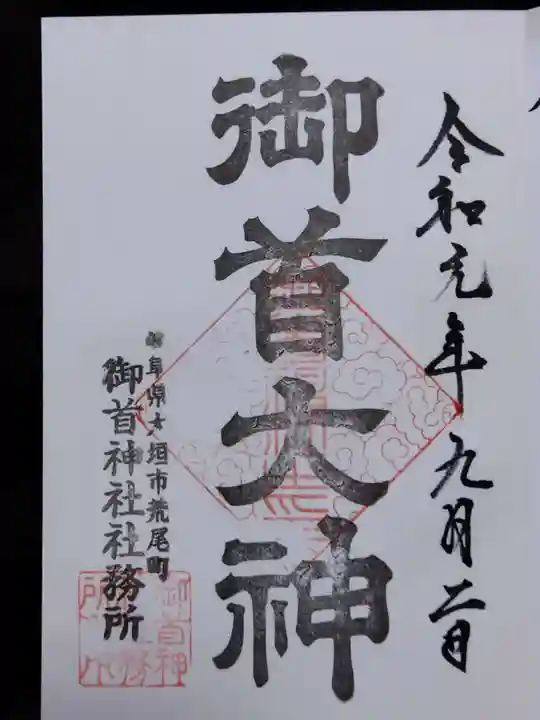 令和元年九月二日
御首大神
岐阜県大垣市荒尾町
御首神社社務所